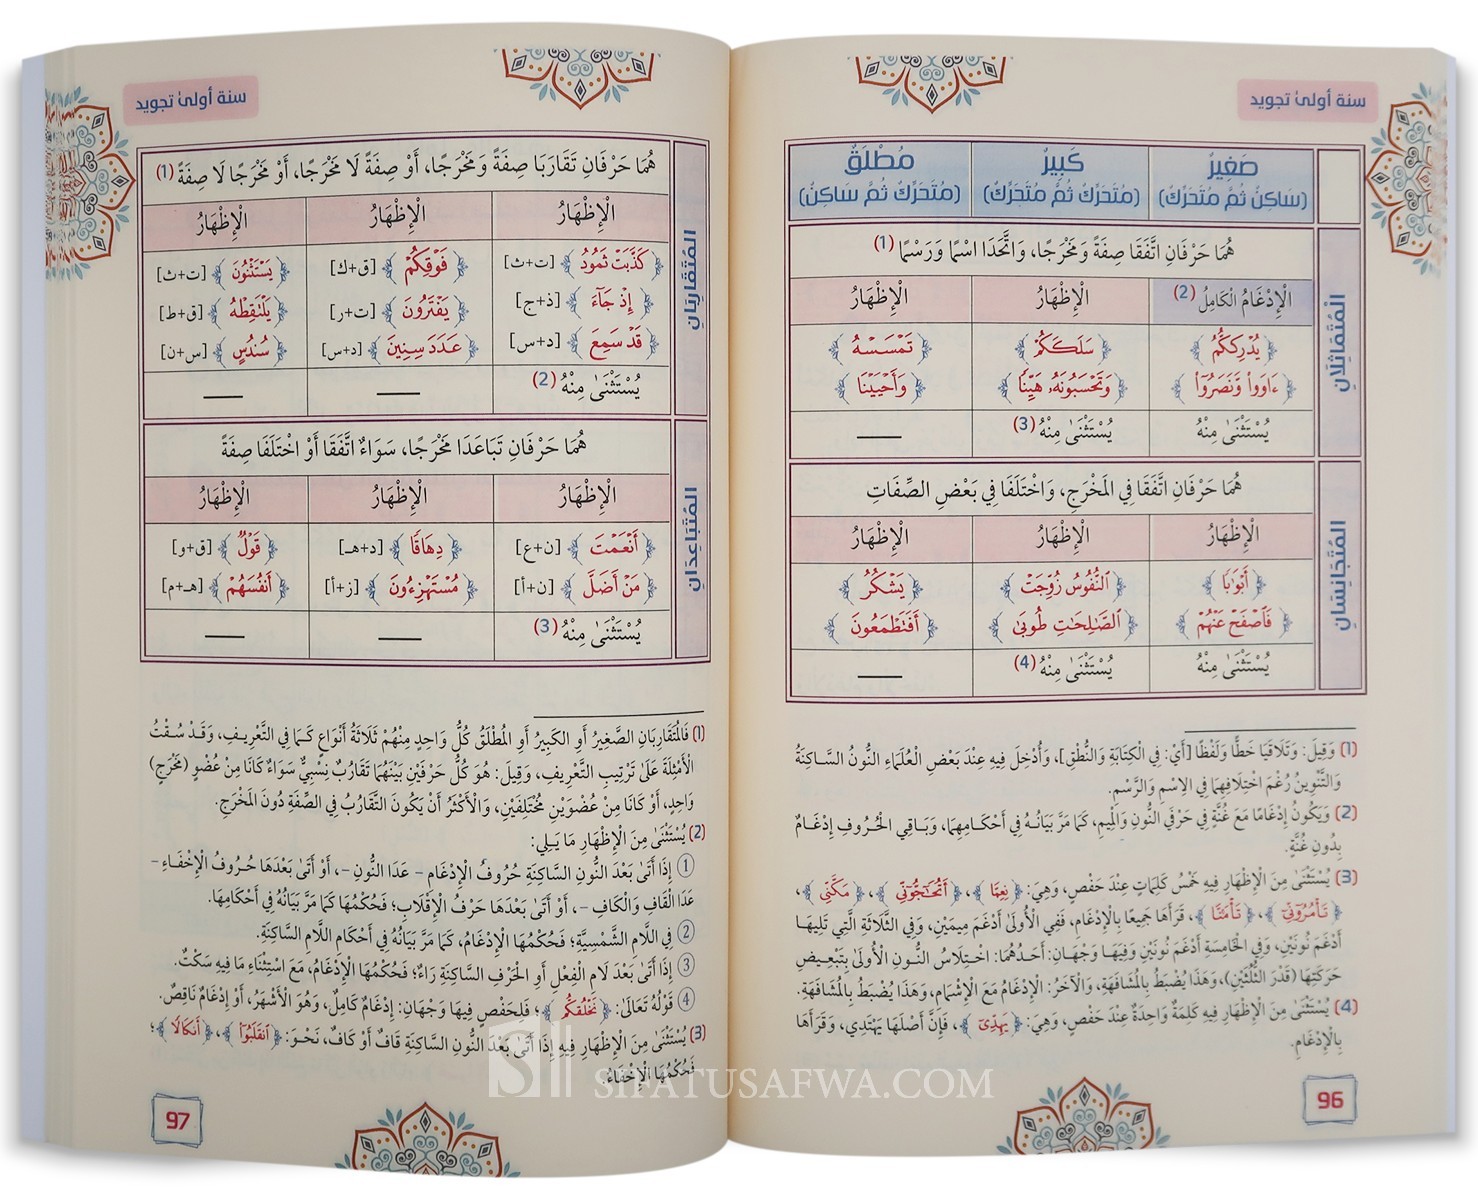 سنة أولىٰ تجويد
صَغِيرٌ
(سَاكِنٌ ثُمَّ مُتَحَرِّكٌ)
كَبِيرٌ
(مُتَحَرِّكٌ ثُمَّ مُتَحَرِّكٌ)
مُطْلَقٌ
(مُتَحَرِّكٌ ثُمَّ سَاكِنٌ)
الْمُتَمَاثِلَانِ
هُمَا حَرْفَانِ اتَّفَقَا صِفَةً وَمَخْرَجًا، وَاتَّحَدَا اسْمًا وَرَسْمًا (1)
الْإِدْغَامُ الْكَامِلُ (2)
الْإِظْهَارُ
الْإِظْهَارُ
﴿يُدْرِككُّمُ﴾
﴿سَلَكَكُمْ﴾
﴿تَمْسَسْهُ﴾
﴿ءَاوَوا۟ وَّنَصَرُوٓا۟﴾
﴿وَتَحْسَبُونَهُۥ هَيِّنًا﴾
﴿وَأَحْيَيْنَا﴾
يُسْتَثْنَىٰ مِنْهُ
يُسْتَثْنَىٰ مِنْهُ (3)
الْمُتَجَانِسَانِ
هُمَا حَرْفَانِ اتَّفَقَا فِي الْمَخْرَجِ، وَاخْتَلَفَا فِي بَعْضِ الصِّفَاتِ
الْإِظْهَارُ
الْإِظْهَارُ
الْإِظْهَارُ
﴿أَبْوَٰبًا﴾
﴿ٱلنُّفُوسُ زُوِّجَتْ﴾
﴿يَشْكُرُ﴾
﴿فَٱصْفَحْ عَنْهُمْ﴾
﴿ٱلصَّـٰلِحَـٰتِ طُوبَىٰ﴾
﴿أَفَتَطْمَعُونَ﴾
يُسْتَثْنَىٰ مِنْهُ
يُسْتَثْنَىٰ مِنْهُ (4)
(1) وَقِيلَ: وَتَلَاقَيَا خَطًّا وَلَفْظًا [أَيْ: فِي الْكِتَابَةِ وَالنُّطْقِ]، وَأُدْخِلَ فِيهِ عِنْدَ بَعْضِ الْعُلَمَاءِ النُّونُ السَّاكِنَةُ
وَالتَّنْوِينُ رُغْمَ اخْتِلَافِهِمَا فِي الِاسْمِ وَالرَّسْمِ.
(2) وَيَكُونُ إِدْغَامًا مَعَ غُنَّةٍ فِي حَرْفَيِ النُّونِ وَالْمِيمِ، كَمَا مَرَّ بَيَانُهُ فِي أَحْكَامِهِمَا، وَبَاقِي الْحُرُوفِ إِدْغَامٌ
بِدُونِ غُنَّةٍ.
(3) يُسْتَثْنَىٰ مِنَ الْإِظْهَارِ فِيهِ خَمْسُ كَلِمَاتٍ عِنْدَ حَفْصٍ، وَهِيَ: ﴿نِعِمَّا﴾، ﴿أَتُحَـٰٓجُّوٓنِّى﴾، ﴿مَكَّنِّى﴾،
﴿تَأْمُرُوٓنِّىٓ﴾، ﴿تَأْمَ۫نَّا﴾، قَرَأَهَا جَمِيعًا بِالْإِدْغَامِ، فَفِي الْأُولَىٰ أَدْغَمَ مِيمَيْنِ، وَفِي الثَّلَاثَةِ الَّتِي تَلِيهَا
أَدْغَمَ نُونَيْنِ، وَفِي الْخَامِسَةِ أَدْغَمَ نُونَيْنِ وَفِيهَا وَجْهَانِ: أَحَدُهُمَا: اخْتِلَاسُ النُّونِ الْأُولَىٰ بِتَبْعِيضِ
حَرَكَتِهَا (قَدْرَ الثُّلُثَيْنِ)، وَهَذَا يُضْبَطُ بِالْمُشَافَهَةِ، وَالْآخَرُ: الْإِدْغَامُ مَعَ الْإِشْمَامِ، وَهَذَا يُضْبَطُ بِالْمُشَافَهَةِ.
(4) يُسْتَثْنَىٰ مِنَ الْإِظْهَارِ فِيهِ كَلِمَةٌ وَاحِدَةٌ عِنْدَ حَفْصٍ، وَهِيَ: ﴿يَهِدِّىٓ﴾، فَإِنَّ أَصْلَهَا يَهْتَدِي، وَقَرَأَهَا
بِالْإِدْغَامِ.
96
سنة أولىٰ تجويد
الْمُتَقَارِبَانِ
هُمَا حَرْفَانِ تَقَارَبَا صِفَةً وَمَخْرَجًا، أَوْ صِفَةً لَا مَخْرَجًا، أَوْ مَخْرَجًا لَا صِفَةً (1)
الْإِظْهَارُ
الْإِظْهَارُ
الْإِظْهَارُ
﴿كَذَّبَتْ ثَمُودُ﴾ [ت+ث]
﴿فَوْقِكُمْ﴾ [ق+ك]
﴿يَسْتَثْنُونَ﴾ [ت+ث]
﴿إِذْ جَآءَ﴾ [ذ+ج]
﴿يَفْتَرُونَ﴾ [ت+ر]
﴿يَلْتَقِطْهُ﴾ [ق+ط]
﴿قَدْ سَمِعَ﴾ [د+س]
﴿عَدَدَ سِنِينَ﴾ [د+س]
﴿سُندُسٍ﴾ [س+ن]
يُسْتَثْنَىٰ مِنْهُ (2)
الْمُتَبَاعِدَانِ
هُمَا حَرْفَانِ تَبَاعَدَا مَخْرَجًا، سَوَاءٌ اتَّفَقَا أَوْ اخْتَلَفَا صِفَةً
الْإِظْهَارُ
الْإِظْهَارُ
الْإِظْهَارُ
﴿أَنْعَمْتَ﴾ [ن+ع]
﴿دِهَاقًا﴾ [د+هـ]
﴿قَوْلٌ﴾ [ق+و]
﴿مَنْ أَضَلَّ﴾ [ن+أ]
﴿مُسْتَهْزِءُونَ﴾ [ز+أ]
﴿أَنفُسَهُمْ﴾ [هـ+م]
يُسْتَثْنَىٰ مِنْهُ (3)
(1) فَالْمُتَقَارِبَانِ الصَّغِيرُ أَوِ الْكَبِيرُ أَوِ الْمُطْلَقُ كُلُّ وَاحِدٍ مِنْهُمْ ثَلَاثَةُ أَنْوَاعٍ كَمَا فِي التَّعْرِيفِ، وَقَدْ سُقْتُ
الْأَمْثِلَةَ عَلَىٰ تَرْتِيبِ التَّعْرِيفِ، وَقِيلَ: هُوَ كُلُّ حَرْفَيْنِ بَيْنَهُمَا تَقَارُبٌ نِسْبِيٌّ سَوَاءٌ كَانَا مِنْ عُضْوٍ (مَخْرَجٍ)
وَاحِدٍ، أَوْ كَانَا مِنْ عُضْوَيْنِ مُخْتَلِفَيْنِ، وَالْأَكْثَرُ أَنْ يَكُونَ التَّقَارُبُ فِي الصِّفَةِ دُونَ الْمَخْرَجِ.
(2) يُسْتَثْنَىٰ مِنَ الْإِظْهَارِ مَا يَلِي:
① إِذَا أَتَىٰ بَعْدَ النُّونِ السَّاكِنَةِ حُرُوفُ الْإِدْغَامِ – عَدَا النُّونِ –، أَوْ أَتَىٰ بَعْدَهَا حُرُوفُ الْإِخْفَاءِ –
عَدَا الْقَافِ وَالْكَافِ –، أَوْ أَتَىٰ بَعْدَهَا حَرْفُ الْإِقْلَابِ؛ فَحُكْمُهَا كَمَا مَرَّ بَيَانُهُ فِي أَحْكَامِهَا.
② فِي اللَّامِ الشَّمْسِيَّةِ؛ فَحُكْمُهَا الْإِدْغَامُ، كَمَا مَرَّ بَيَانُهُ فِي أَحْكَامِ اللَّامِ السَّاكِنَةِ.
③ إِذَا أَتَىٰ بَعْدَ لَامِ الْفِعْلِ أَوِ الْحَرْفِ السَّاكِنَةِ رَاءٌ؛ فَحُكْمُهَا الْإِدْغَامُ، مَعَ اسْتِثْنَاءِ مَا فِيهِ سَكْتٌ.
④ قَوْلُهُ تَعَالَىٰ: ﴿نَخْلُقكُّم﴾؛ فَلِحَفْصٍ فِيهَا وَجْهَانِ: إِدْغَامٌ كَامِلٌ، وَهُوَ الْأَشْهَرُ، أَوْ إِدْغَامٌ نَاقِصٌ.
(3) يُسْتَثْنَىٰ مِنَ الْإِظْهَارِ فِيهِ إِذَا أَتَىٰ بَعْدَ النُّونِ السَّاكِنَةِ قَافٌ أَوْ كَافٌ، نَحْوَ: ﴿ٱنقَلَبُوٓا۟﴾، ﴿أَنكَالًا﴾؛
فَحُكْمُهَا الْإِخْفَاءُ.
97
SIFATUSAFWA.COM